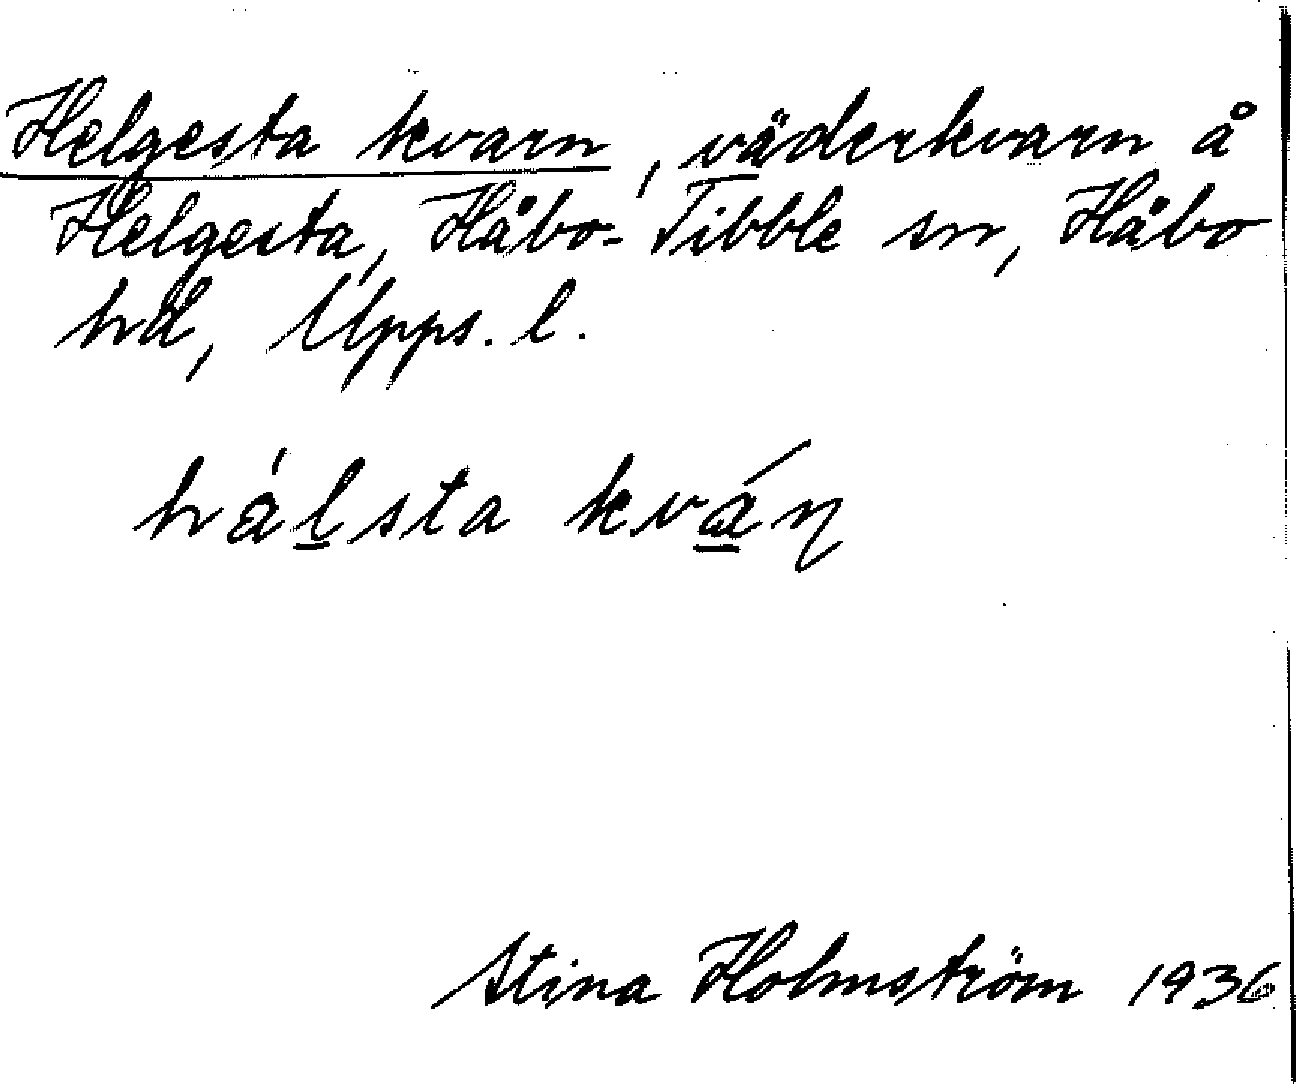 Helgesta kvarn, väderkvarn å
Helgesta, Håbo-Tibble sn, Håbo
hd, Upps. l.
hálsta kván
Stina Holmström 1936